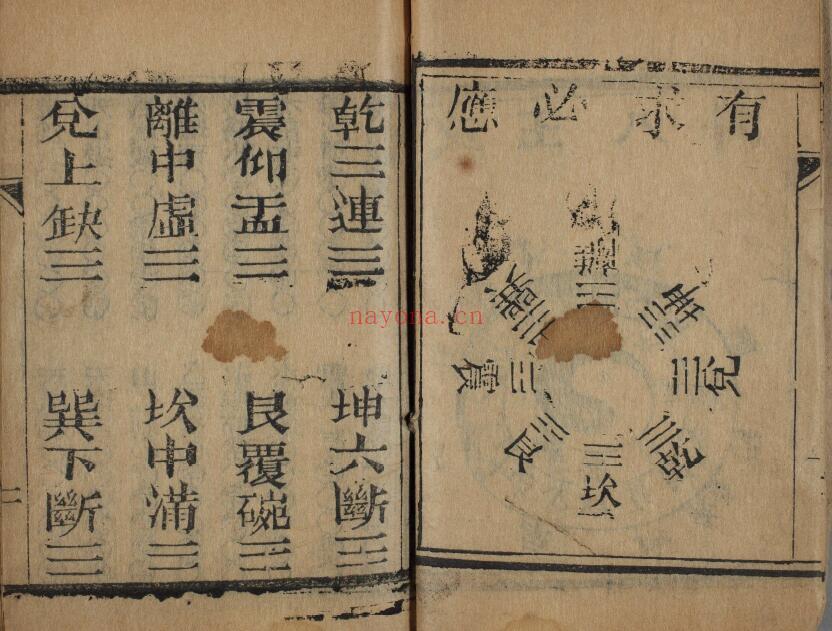 有求必應
離
坤
兌
乾
坎
艮
震
巽
乾三連
坤六斷
震仰盂
艮覆碗
離中虛
坎中滿
兌上缺
巽下斷
二
nayona.cn